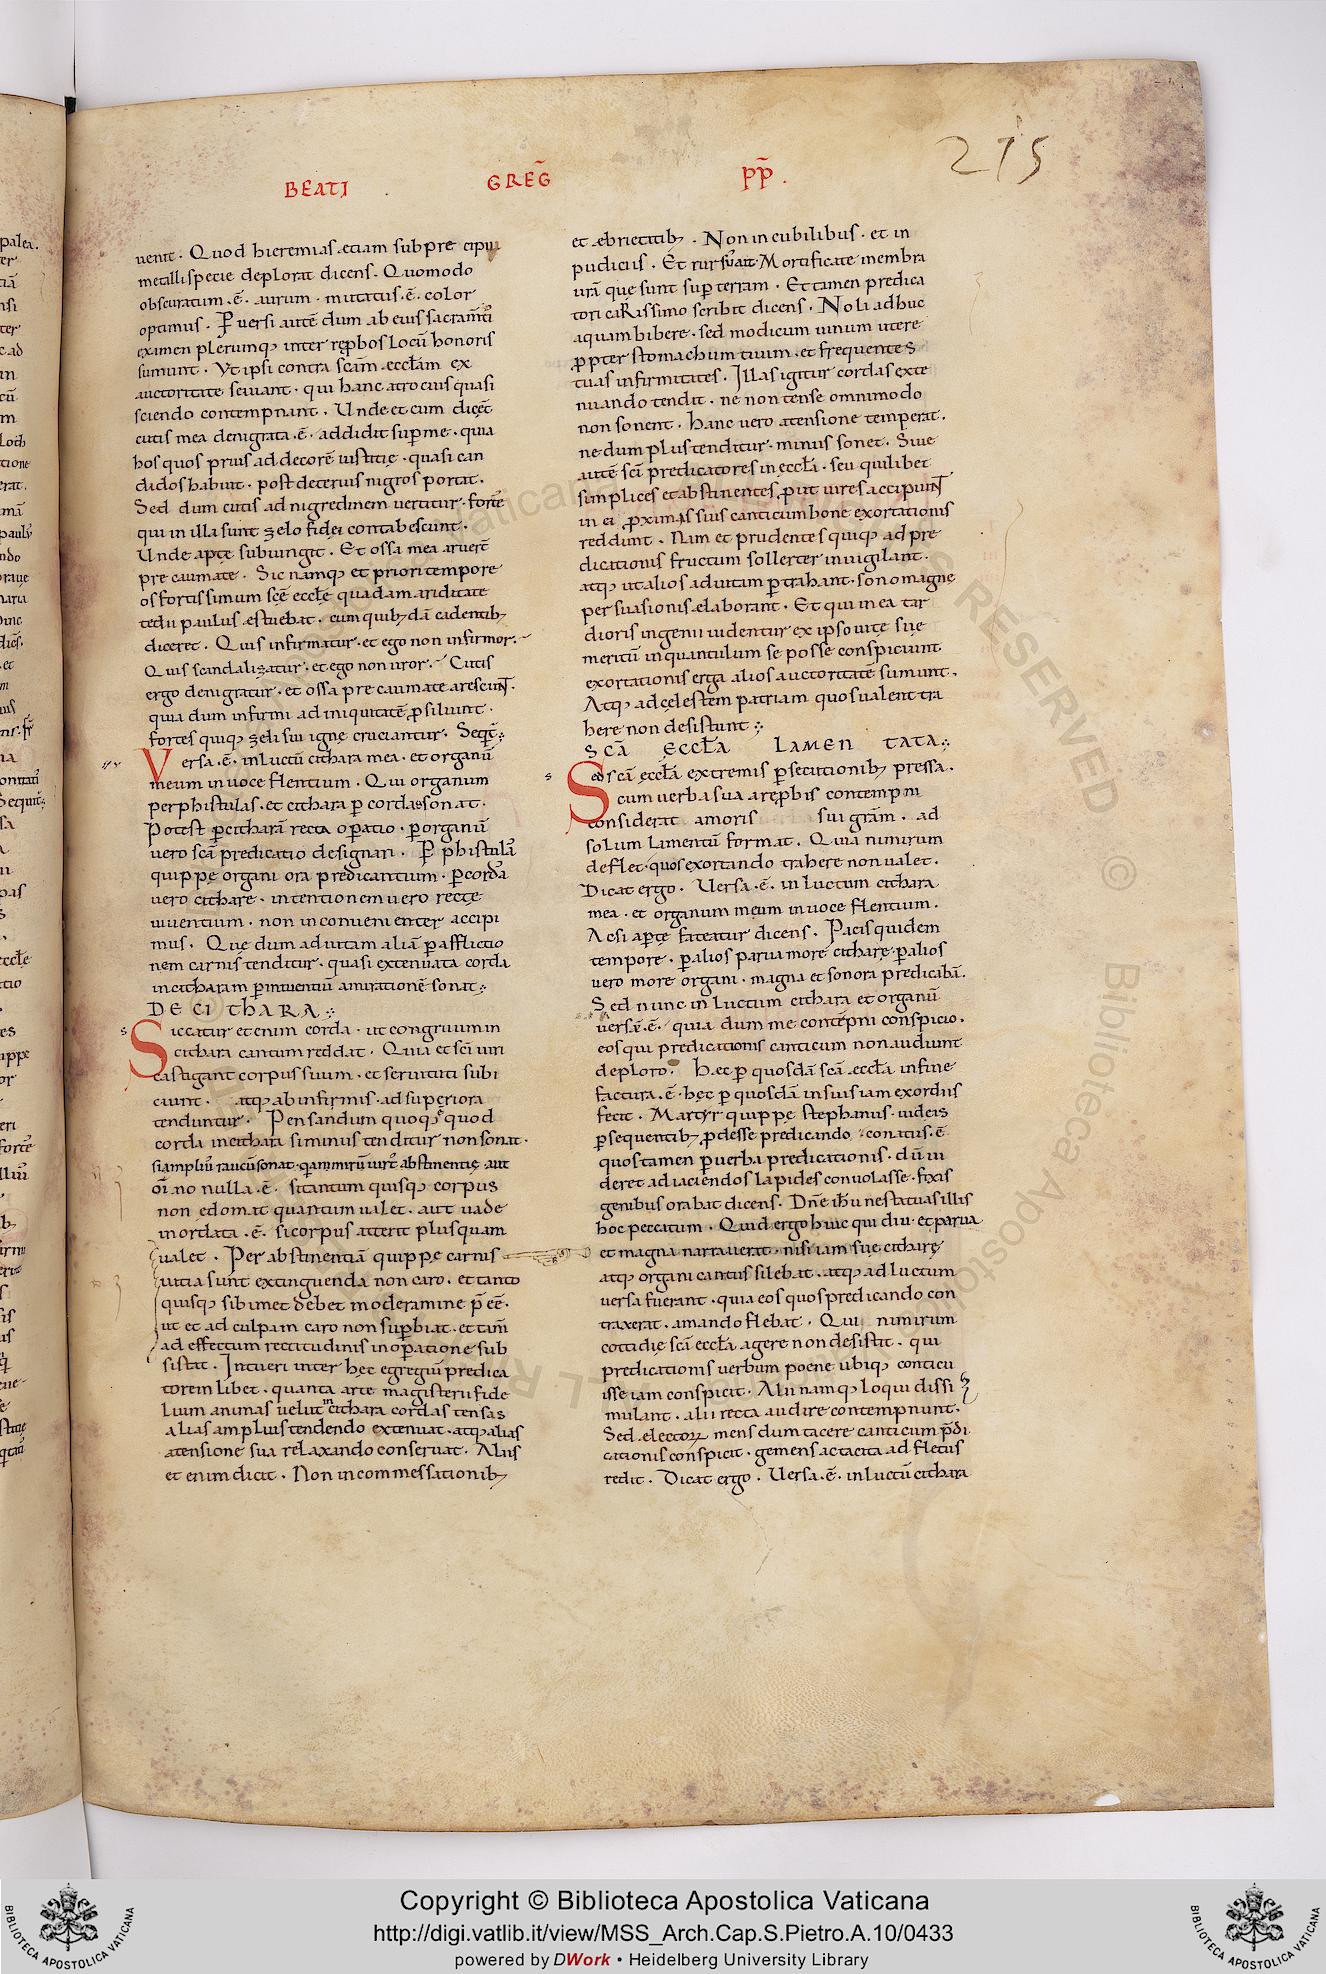 215
BEATI GREḠ PP̄.
uenit. Quod hieremias etiam sub pre cipui
metalli specie deplorat dicens. Quomodo
obscuratum .ē. aurum. mutatus .ē. color
optimus. Puersi autē dum ab eius sacram̄ti
examen plerumq; inter rep̱bos locū honoris
sumunt. Vt ipsi contra scām eccłam ex
auctoritate seuiant. qui hanc atrocius quasi
sciendo contempnant. Unde et cum dicēt
cutis mea denigrata .ē. addidit sup̱ me. quia
hos quos prius ad decorē iustitię. quasi can
didos habuit. post deterius nigros portat.
Sed dum cutis ad nigredinem uertitur. fortē
qui in illa sunt zelo fidei contabescunt.
Unde apte subiungit. Et ossa mea aruerē
pre caumate. Sic namq; et priori tempore
os fortissimum scē eccłe quadam ariditate
tedii paulus estuebat. cum quib; dā cadentib;
diceret. Quis infirmatur. et ego non infirmor.
Quis scandalizatur. et ego non uror. Cutis
ergo denigratur. et ossa pre caumate arescunt.
quia dum infirmi ad iniquitatē p̱siliunt.
fortes quiq; zeli sui igne cruciantur. Seqr̄:
Versa .ē. in luctū cithara mea. et organū
meum in uoce flentium. Qui organum
per phistulas. et cithara p̱ cordas sonat.
Potest p̱ citharā recta op̱atio. p̱ organū
uero scā predicatio designari. P̱ phistulā
quippe organi ora predicantium. p̱ cordā
uero citharę. intentionem uero recte
uiuentium. non inconuenienter accipi
mus. Quę dum ad uitam aliā p̱ afflictio
nem carnis tenditur. quasi extenuata corda
in citharam p̱ intuentiū amirationē sonat:
DE CIThARA:
Siccatur et enim corda. ut congruum in
cithara cantum reddat. Quia et sc̄i uiri
castigant corpus suum. et seruituti subi
ciunt. atq; ab infirmis. ad superiora
tenduntur. Pensandum quoq; ē quod
corda in cithara si minus tenditur non sonat.
si ampliu᷒ raucū sonat.
nulla .ē. si tantum quisq; corpus
non edomat quantum ualet. aut ualde
inordata .ē. si corpus atterit plusquam
ualet. Per abstinentiā quippe carnis
uitia sunt extinguenda non caro. et tanto
quisq; sibimet debet moderamine p̄ eē.
ut et ad culpam caro non sup̱biat. et tam̄
ad effectum rectitudinis in op̱atione sub
sistat. Intueri inter hęc egregiū predica
torem libet. quanta arte magisterii fide
lium animas uelut in cithara cordas tensas
alias amplius tendendo extenuat. atq; alias
a tensione sua relaxando conseruat. Aliis
et enim dicit. Non in commessationib;
et ebrietatib;. Non in cubilibus. et in
pudiciis. Et rursū ait. Mortificate membra
urā que sunt sup̱ terram. Et tamen predica
tori caRissimo scribit dicens. Noli adhuc
aquam bibere. sed modicum uinum utere
p̱pter stomachum tuum. et frequentes
tuas infirmitates. Illas igitur cordas exte
nuando tendit. ne non tense omnimodo
non sonent. Hanc uero a tensione temperat.
ne dum plus tenditur. minus sonet. Siue
autē sc̄i predicatores in eccłia. seu quilibet
simplices et abstinentes p̱ ut uires accipiunt
in ei p̱ximis suis canticum bone exortationis
reddunt. Nam et prudentes quiq; ad pre
dicationis fructum sollerter inuigilant.
atq; ut alios ad uitam p̱trahant. sono magne
persuasionis elaborant. Et qui in ea tar
dioris ingenii uidentur ex ipso uitę suę
meritū in quantulum se posse conspiciunt
exortationis erga alios auctoritatē sumunt.
Atq; ad cęlestem patriam quos ualent tra
here non desistunt:
SCĀ ECCŁA LAMEN TATA:
Sed scā eccłā extremis p̱secutionib; pressa.
cum uerba sua a rep̱bis contempni
considerat amoris sui grām. ad
solum lamentū format. Quia nimirum
deflet. quos exortando trahere non ualet.
Dicat ergo. Uersa .ē. in luctum cithara
mea. et organum meum in uoce flentium.
Ac si apte fateatur dicens. Pacis quidem
tempore. p̱ alios parua more cithare. p̱ alios
uero more organi. magna et sonora predicabā.
Sed nunc in luctum cithara et organū
uersū .ē. quia dum me contēpni conspicio.
eos qui predicationis canticum non audiunt
deploro. Hęc p̱ quosdā scā eccłā in fine
factura .ē. hęc p̱ quosdā in suis iam exordiis
fecit. Martyr quippe stephanus. iudeis
p̱sequentib; p̱desse predicando conatus .ē.
quos tamen p̱ uerba predicationis. dū ui
deret ad iaciendos lapides conuolasse. fixis
genibus orabat dicens. Dn̄e ih̄u ne statuas illis
hoc peccatum. Quid ergo huic qui diu et parua
et magna narrauerat. nisi iam sue citharę
atq; organi cantus silebat. atq; ad luctum
uersa fuerant. quia eos quos predicando con
traxerat. amando flebat. Qui nimirum
cottidie scā eccłā agere non desistit. qui
predicationis uerbum poene ubiq; conticu
isse iam conspicit. Alii namq; loqui dissi
mulant. alii recta audire contempnunt.
Sed electoꝝ mens dum tacere canticum p̄di
cationis conspicit. gemens ac tacita ad fletus
redit. Dicat ergo. Uersa .ē. in luctū cithara
Copyright © Biblioteca Apostolica Vaticana
http://digi.vatlib.it/view/MSS_Arch.Cap.S.Pietro.A.10/0433
powered by DWork • Heidelberg University Library